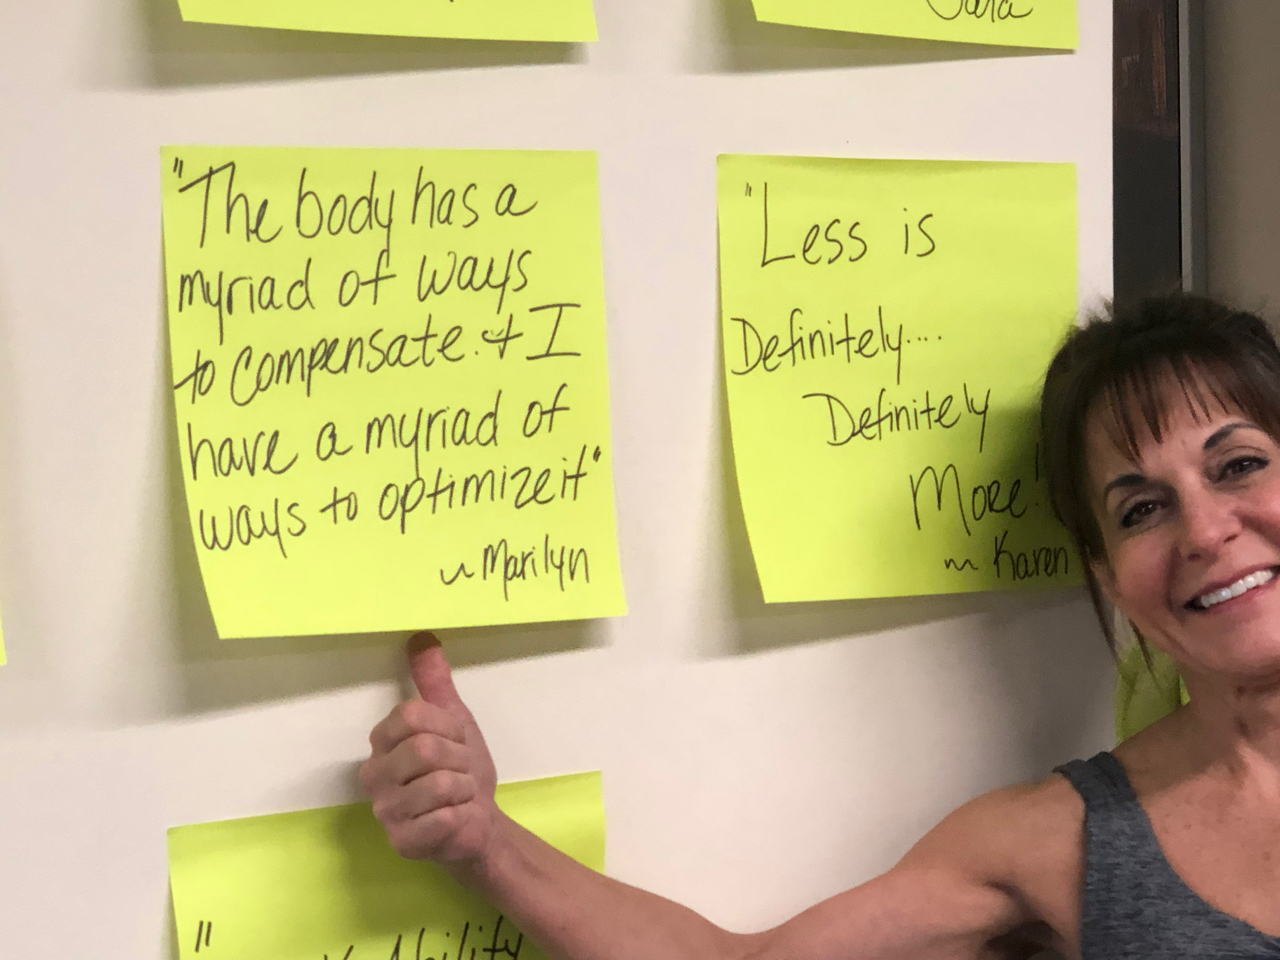 Sara
"The body has a
myriad of ways
to compensate. & I
have a myriad of
ways to optimize it"
~ Marilyn
"Less is
Definitely....
Definitely
More!
~ Karen
"
Ability